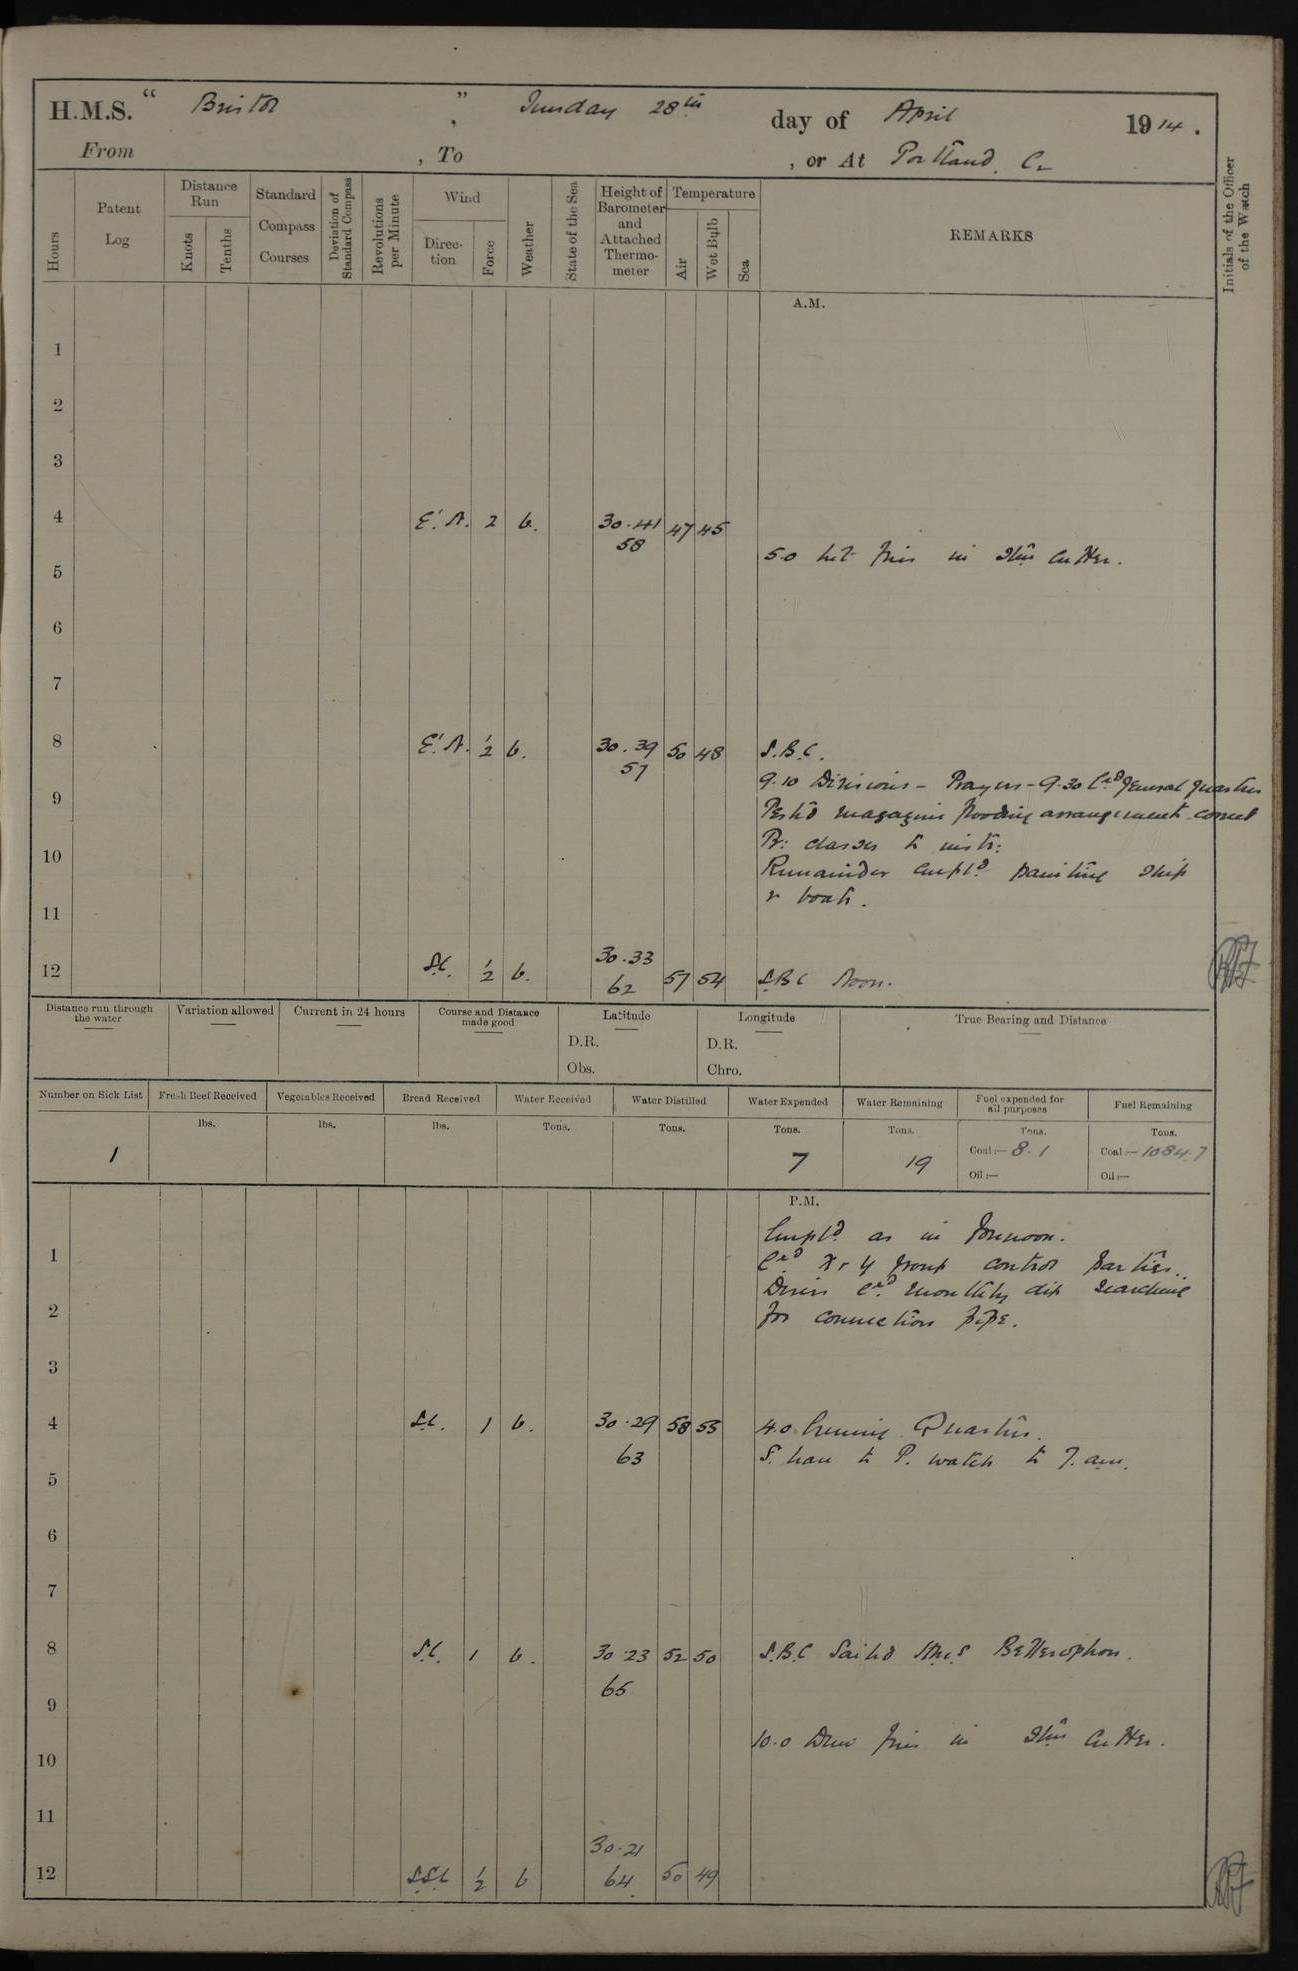 H.M.S. “ Bristol ” , Tuesday 28th day of April 1914.
From , To , or At Portland
Hours
Patent Log
Distance Run
Knots
Tenths
Standard Compass Courses
Deviation of Standard Compass
Revolutions per Minute
Wind
Direction
Force
Weather
State of the Sea
Height of Barometer and Attached Thermometer
Temperature
Air
Wet Bulb
Sea
REMARKS
Initials of the Officer of the Watch
A.M.
1
2
3
4 2 b. 30.41 47 45
58
5.0 in Stm Cutter.
5
6
7
8 ½ b. 30.39 50 48 S.B.C.
57
9.10 Divisions - Prayers - 9.30 Exd General Quarters
9
Testd magazine flooding arrangements correct
P: classes to instn:
10
Remainder empld painting ship
& boats.
11
12 ½ b. 30.33 57 54 SBC Noon.
62
Distance run through the water
Variation allowed
Current in 24 hours
Course and Distance made good
Latitude
D.R.
Obs.
Longitude
D.R.
Chro.
True Bearing and Distance
Number on Sick List
Fresh Beef Received
Vegetables Received
Bread Received
Water Received
Water Distilled
Water Expended
Water Remaining
Fuel expended for all purposes
Fuel Remaining
lbs. lbs. lbs. Tons. Tons. Tons. Tons. Tons. Tons.
1 7 19 Coal:— 8.1 Coal:— 1084.7
Oil:— Oil:—
P.M.
Empld as in forenoon.
1
Exd X & Y group control parties.
Divers Exd monthly dip searching
2
for connection pipe.
3
4 1 b. 30.29 58 53 4.0 Evening Quarters.
63
S. leave to P. watch to 7. am.
5
6
7
8 1 b. 30.23 52 50 S.B.C Sailed HMS Bellerophon.
65
9
10.0 Drew fires in Stm Cutter.
10
11
12 ½ b 30.21 50 49
64